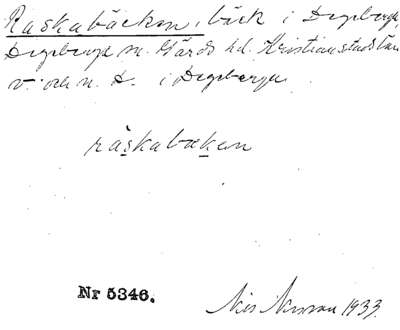 Raskabäcken, bäck i Degeberga,
Degeberga sn. Gärds hd. Kristianstads län
v. och n. d. i Degeberga
råskabäkan
Nr 5346.
Nils Nilsson 1933.